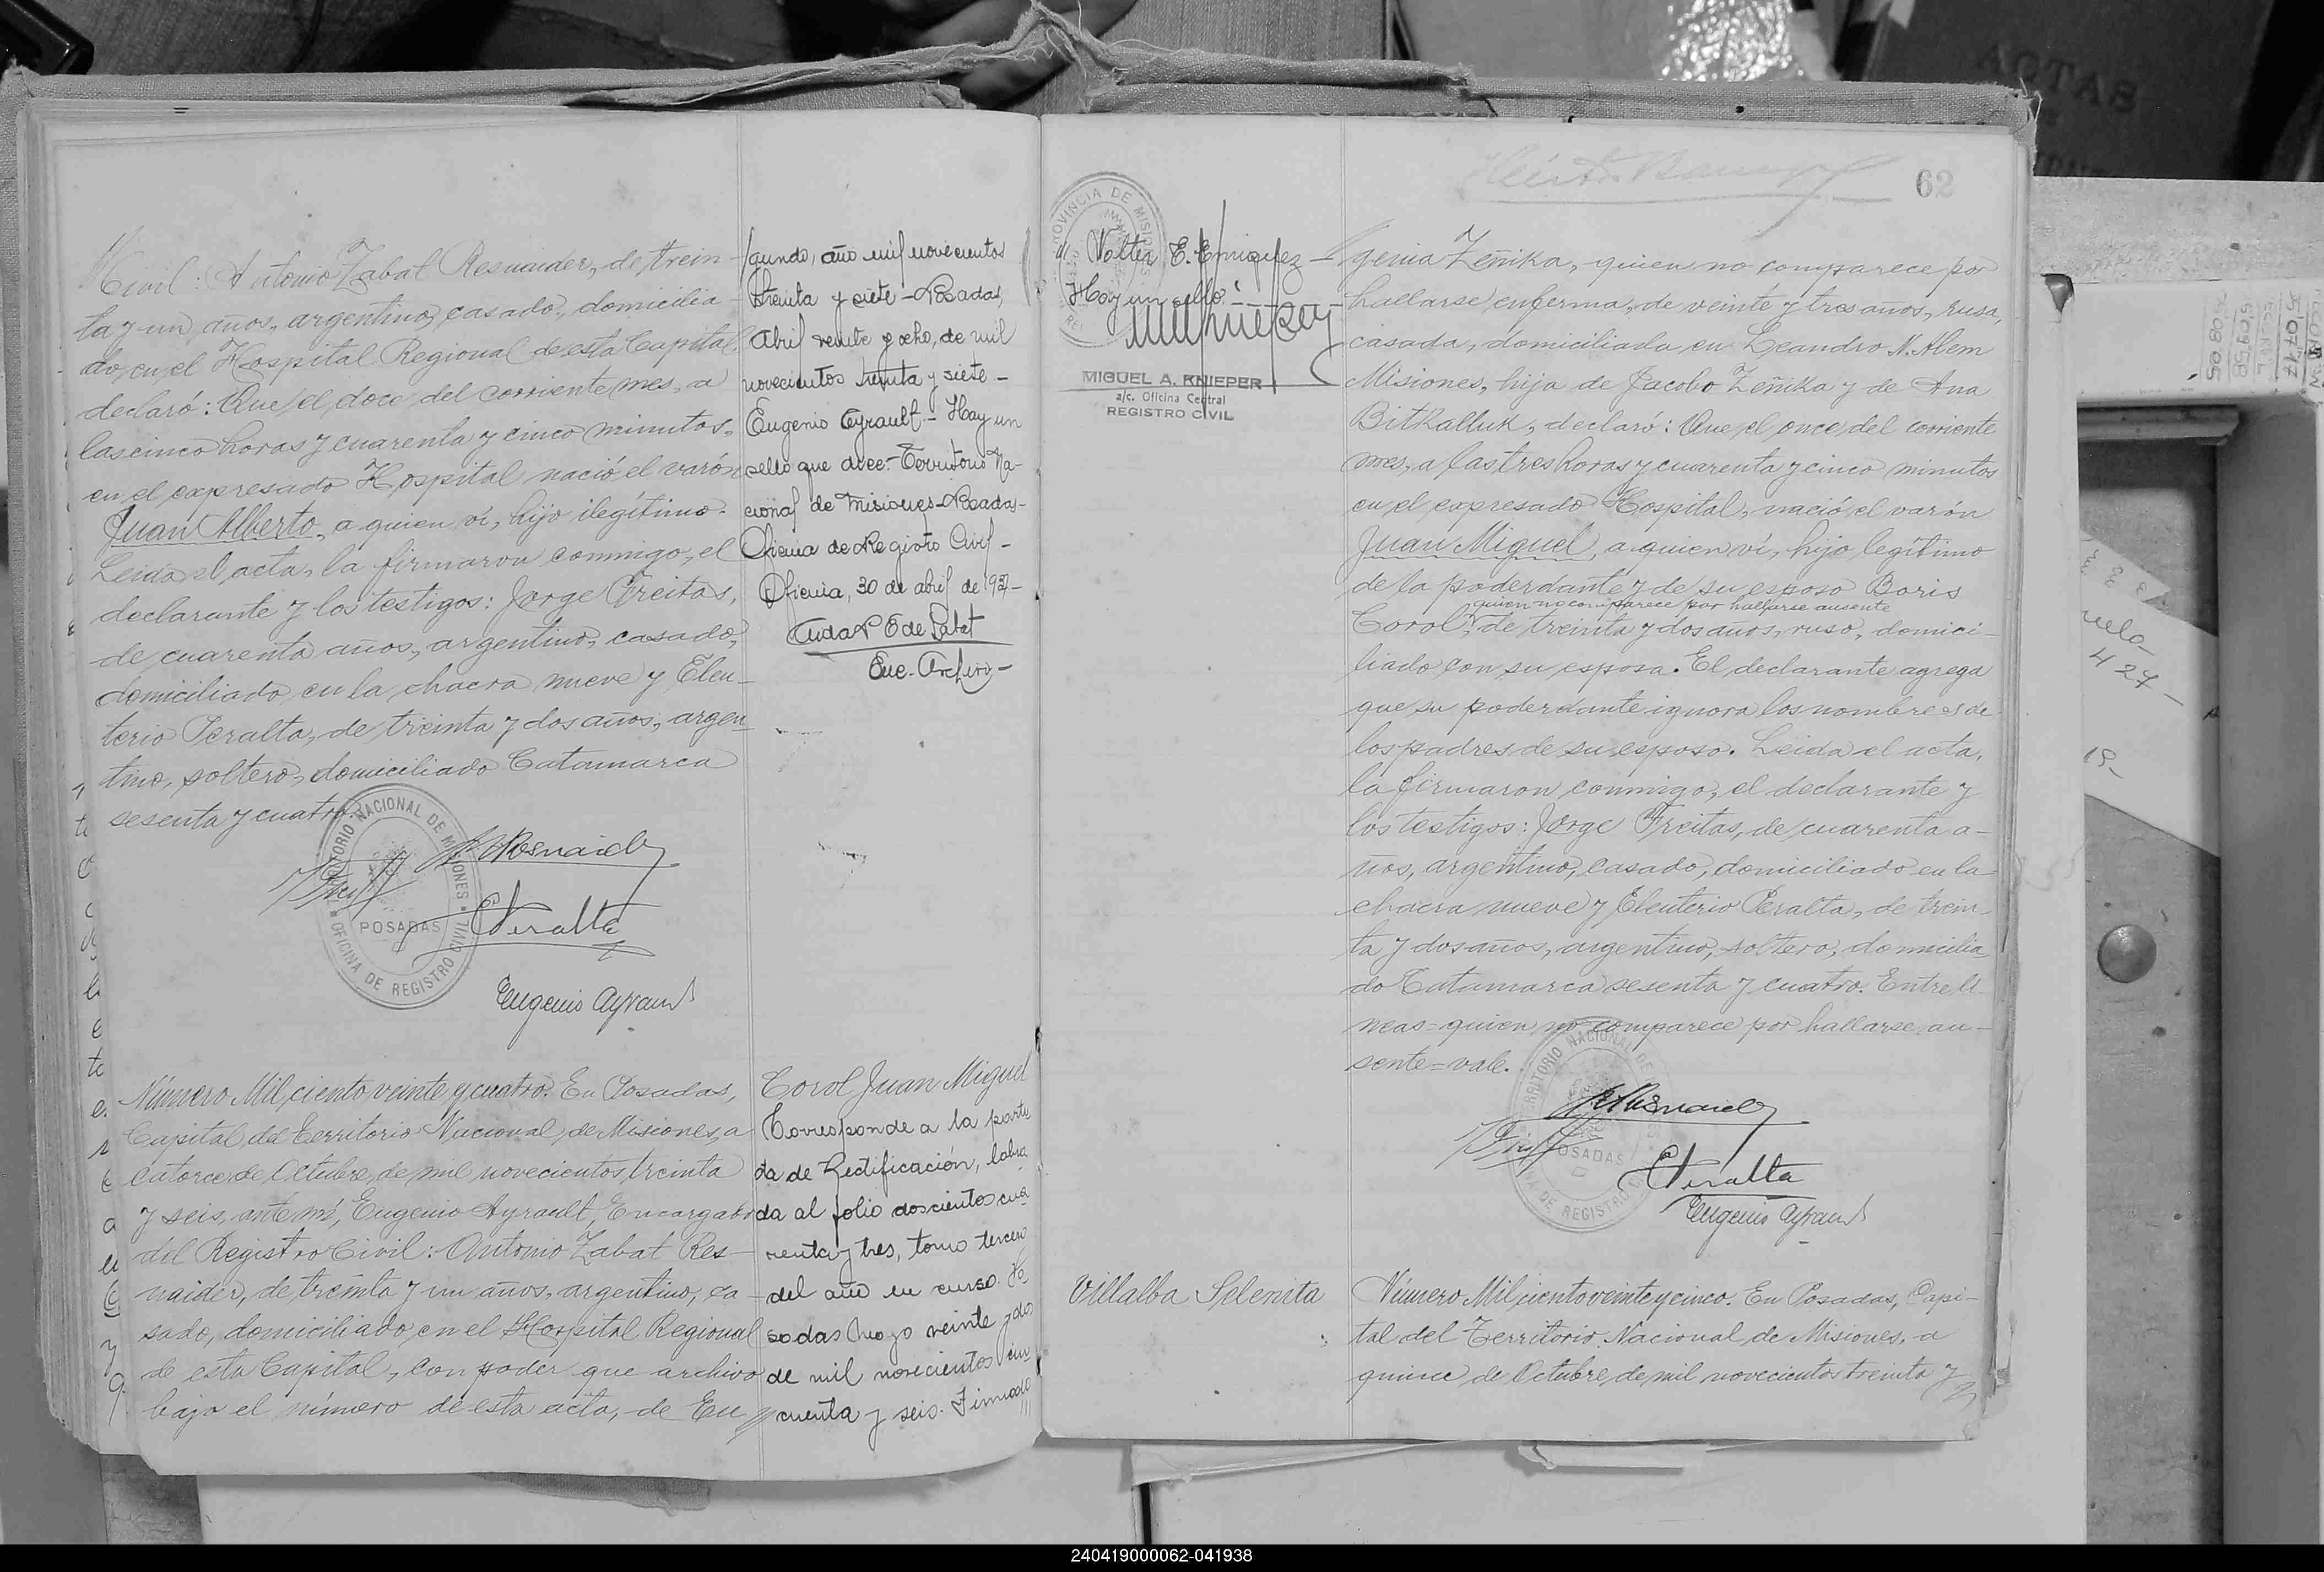 Civil: Antonio Zabat Resnaider, de trein-
ta y un años, argentino, casado, domicilia-
do, en el Hospital Regional de esta Capital,
declaró: Que el doce del corriente mes, a
las cinco horas y cuarenta y cinco minutos,
en el expresado Hospital nació el varón
Juan Alberto, a quien ví, hijo ilegítimo.
Leida el acta, la firmaron conmigo, el
declarante y los testigos: Jorge Freitas,
de cuarenta años, argentino, casado,
domiciliado en la chacra nueve y Eleu-
terio Peralta, de treinta y dos años, argen-
tino, soltero, domiciliado Catamarca
sesenta y cuatro.
TERRITORIO NACIONAL DE MISIONES
POSADAS
OFICINA DE REGISTRO CIVIL
Resnaider
E Peralta
Eugenio Ayrault
Número Mil ciento veinte y cuatro. En Posadas,
Capital del Territorio Nacional de Misiones, a
catorce de Octubre, de mil novecientos treinta
y seis, ante mí, Eugenio Ayrault, Encargado
del Registro Civil: Antonio Zabat Res-
naider, de treinta y un años, argentino, ca-
sado, domiciliado en el Hospital Regional
de esta Capital, con poder que archivo
bajo el número de esta acta, de Eu
gundo, año mil novecientos
treinta y siete - Posadas,
Abril veinte y ocho, de mil
novecientos treinta y siete -
Eugenio Ayrault - Hay un
sello que dice: Territorio Na-
cional de Misiones - Posadas -
Oficina de Registro Civil -
Oficina, 30 de abril de 1937 -
Enc. Archivo -
Corol Juan Miguel
Corresponde a la parti
da de Rectificación, labra
da al folio doscientos cua
renta y tres, tomo tercero
del año en curso. Po
sadas Mayo veinte y dos
de mil novecientos cin
cuenta y seis. Firmado
PROVINCIA DE MISIONES
Walter E. Enriquez -
Hay un sello. -
MIGUEL A. KNIEPER
a/c. Oficina Central
REGISTRO CIVIL
62
genia Zeñika, quien no comparece por
hallarse enferma, de veinte y tres años, rusa,
casada, domiciliada en Leandro N. Alem
Misiones, hija de Jacobo Zeñika y de Ana
Bitkalluk, declaró: Que el once del corriente
mes, a las tres horas y cuarenta y cinco minutos
en el expresado Hospital, nació el varón
Juan Miguel, a quien ví, hijo legítimo
de la poderdante y de su esposo Boris
quien no comparece por hallarse ausente
Corol, de treinta y dos años, ruso, domici-
liado con su esposa. El declarante agrega
que su poderdante ignora los nombres de
los padres de su esposo. Leida el acta,
la firmaron conmigo, el declarante y
los testigos: Jorge Freitas, de cuarenta a-
ños, argentino, casado, domiciliado en la
chacra nueve y Eleuterio Peralta, de trein-
ta y dos años, argentino, soltero, domicilia
do Catamarca sesenta y cuatro. Entre li-
neas = quien no comparece por hallarse au-
sente = vale.
TERRITORIO NACIONAL DE
POSADAS
DE REGISTRO
Resnaider
E Peralta
Eugenio Ayrault
Villalba Selenita
Número Mil ciento veinte y cinco. En Posadas, Capi-
tal del Territorio Nacional de Misiones, a
quince de Octubre, de mil novecientos treinta y
ACTAS
427
19-
240419000062-041938